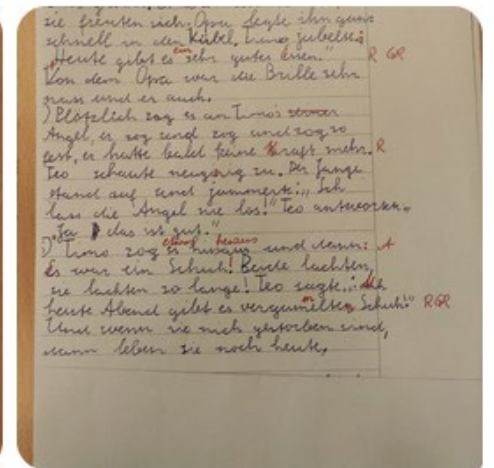 sie freuten sich. Opa legte ihn ganz
schnell in den Kübel. Timo jubelte:
„Heute gibt es ein sehr gutes Essen.“ R GR
Von dem Opa war die Brille sehr
nass und er auch.
) Plötzlich zog es an Timos
Angel, er zog und zog und zog so
fest, er hatte bald keine Kraft mehr. R
Teo schaute neugierig zu. Der Junge
stand auf und jammerte: „Ich
lass die Angel nie los!“ Teo antwortete,
„Ja das ist gut.“
etwas heraus
) Timo zog es hinaus und dann: A
Es war ein Schuh! Beide lachten,
sie lachten so lange! Teo sagte:
heute Abend gibt es vergammelten Schuh!“ RGR
Und wenn sie nich gestorben sind,
dann leben sie noch heute,